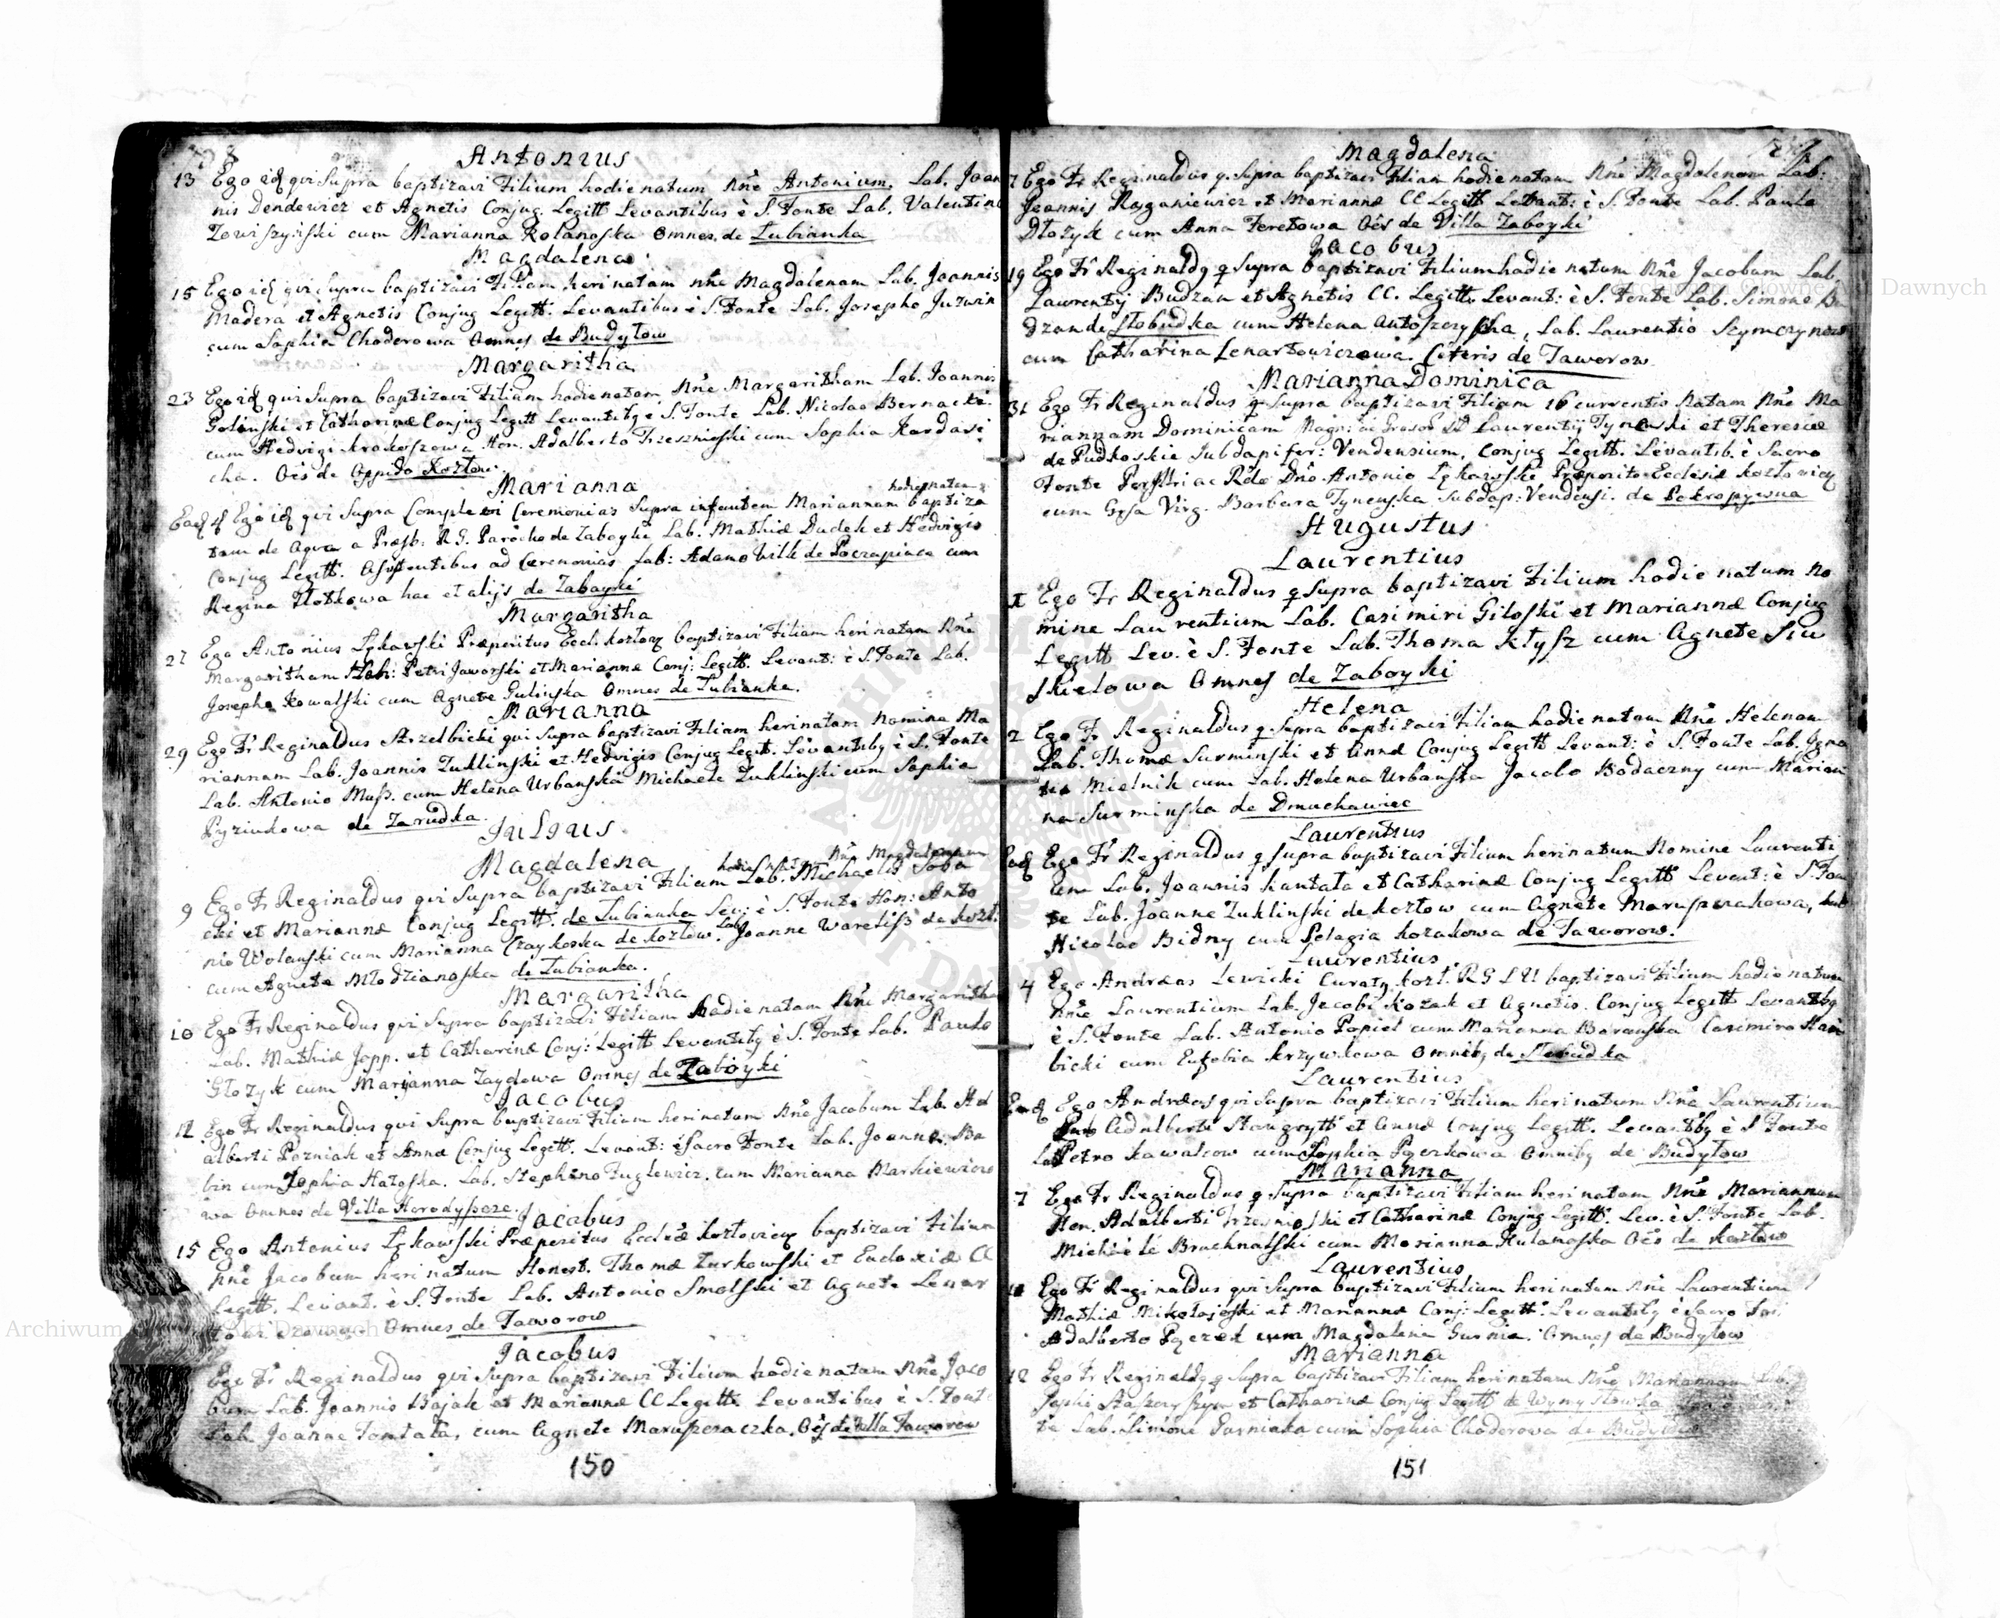 Antonius
13 Ego id qui Supra baptizavi Filium hodie natum Nne Antonium. Lab. Joan
nis Dendewicz et Agnetis Conjug. Legitt Levantibus è S. Fonte Lab. Valentino
cum Marianna Rolanoska omnes de Lubianka
Magdalena
15 Ego id qui Supra baptizavi Filiam heri natam nne Magdalenam Lab. Joannis
Madera et Agnetis Conjug Legitt. Levantibus è S. Fonte Lab. Josepho
cum Sophia Choderowa omnes de Budyłow
Margaritha
23 Ego id qui Supra baptizavi Filiam hodie natam, Nne Margaritham Lab. Joannis
Golinski et Catharinæ Conjug Legitt Levantibq e S. Fonte Lab. Nicolao Bernacki
cum Hedvigi Krokoszowa Hon. Adalberto Trzesznioski cum Sophia Kardasi
cha. Oēs de Oppido Kozłow.
Marianna
hodie natam
Eadq Ego id qui Supra Complevi Ceremonias Supra infantem Mariannam baptiza
tam de Aqva a Præsb. R. G. Parocho de Zaboyki Lab. Mathiæ Dudek et Hedvigis
Conjug Legitt. Assistentibus ad Ceremonias Lab: Adamo Wilk de Poczapince cum
Regina Złotkowa hac et alijs de Zaboyki
Margaritha
27 Ego Antonius Łykawski Præpositus Eccl. kozłov baptizavi Filiam heri natam Nne
Margaritham Petri Jaworski et Mariannæ Conj: Legitt. Levant: è S. Fonte Lab.
Josepho Kowalski cum Agnete Gulinska omnes de Lubianka.
Marianna
29 Ego Fr Reginaldus Strzelbicki qui Supra baptizavi Filiam heri natam Nomine Ma
riannam Lab. Joannis Zuklinski et Hedvigis Conjug Legitt. Levantibq è S. Fonte
Lab. Antonio Muss. cum Helena Urbanska Michaele Zuklinski cum Sophia
Pyziukowa de Zarudka.
Julius
Magdalena
hodie natam Nne Magdalenam
9 Ego Fr Reginaldus qui Supra baptizavi Filiam Lab. Michaelis Sobo
cki et Mariannæ Conjug Legitt. de Lubianka Lev: è S. Fonte Hon: Anto
nio Wolanski cum Marianna Czaykoska de Kozłow. Lab Joanne Warekiss de Kozł:
cum Agnete Młodzianoska de Lubianka.
Margaritha
10 Ego Fr Reginaldus qui Supra baptizavi Filiam hodie natam Nne Margaritha
Lab. Mathiæ Jopp. et Catharinæ Conj: Legitt Levantibq è S. Fonte Lab. Paulo
Głozyk cum Marianna Zaydowa omnes de Zaboyki
Jacobus
12 Ego Fr Reginaldus qui Supra baptizavi Filium heri natum Nne Jacobum Lab. Ad
alberti Pozniak et Annæ Conjug Legitt. Levant: è Sacro Fonte Lab. Joanne Ba
bin cum Sophia Hatoska. Lab. Stephano Zuglewicz. cum Marianna Markiewiczo
wa omnes de Villa Horodyszcze.
Jacobus
15 Ego Antonius Łykawski Præpositus Eccliæ Kozłoviens baptizavi Filium
Nne Jacobum heri natum Honest. Thomæ Zurkowski et Eudoxiæ CC
Legitt. Levant. è S. Fonte Lab. Antonio Smolski et Agnete Lenar
Omnes de Taworow
Jacobus
Ego Fr Reginaldus qui Supra baptizavi Filium hodie natum Nne Jaco
bum Lab. Joannis Bajak et Mariannæ CC Legitt. Levantibus è S. Font
Lab Joanne Fontata, cum Agnete Maruszczaczka. Oēs de Villa Taworow
150
Magdalena
17 Ego Fr Reginaldus q. Supra baptizavi Filiam hodie natam Nne Magdalenam Lab:
Joannis Roganiewicz et Mariannæ CC Legitt Levant: è S. Fonte Lab. Paulo
Dłozyk cum Anna Ferebowa Oēs de Villa Zaboyki
Jacobus
19 Ego Fr Reginaldq q Supra baptizavi Filium hodie natum Nne Jacobum Lab.
Laurentij Budzan et Agnetis CC. Legitt. Levant: è S. Fonte Lab. Simone Bu
dzan de Słobudka cum Helena Antoszczyska, Lab. Laurentio Szymczyno
cum Catharina Lenartowiczowa. Ceteris de Taworow.
Marianna Dominica
31 Ego Fr Reginaldus q Supra baptizavi Filiam 16 currentis natam Nne Ma
riannam Dominicam Magn: ac Laurentij Tynenski et Theresiæ
de Rudkoskie Subdapifer: Vendensium, Conjug Legitt. Levantib. è Sacro
Fonte ac Rdo Dno Antonio Łykawski Præposito Ecclesiæ Kozłovien
cum Virg. Barbara Tynenska Subdap: Vendensi. de Pokropywna
Augustus
Laurentius
1 Ego Fr Reginaldus q Supra baptizavi Filium hodie natum No
mine Laurentium Lab. Casimiri Giloski et Mariannæ Conjug
Legitt Lev. è S. Fonte Lab. Thoma Kłysz cum Agnete Siu
skielowa Omnes de Zaboyki
Helena
2 Ego Fr Reginaldus q Supra baptizavi Filiam hodie natam Nne Helenam
Lab. Thomæ Surminski et Annæ Conjug Legitt Levant: è S. Fonte Lab. Igna
tio Mielnik cum Lab. Helena Urbanska Jacobo Bodaczny cum Marian
na Surminska de Dmuchawiec
Laurentius
Eadq Ego Fr Reginaldus q Supra baptizavi Filium heri natum Nomine Laurenti
um Lab. Joannis Kantata et Catharinæ Conjug Legitt Levant: è S. Fon
te Lab. Joanne Zuklinski de Kozłow cum Agnete Maruszczakowa,
Nicolao Bidny cum Pelagia kozakowa de Taworow.
Laurentius
4 Ego Andræas Lewicki Curatq kozł. R G L U baptizavi Filium hodie natum
Nne Laurentium Lab. Jacobi Kozak et Agnetis. Conjug Legitt Levantibq
è S. Fonte Lab. Antonio Papiel cum Marianna Baranska Casimiro
bicki cum Eufobia Krzywkowa Omnibq de Słobudka
Laurentius
Eadq Ego Andræas qui Supra baptizavi Filium heri natum Nne Laurentium
Lab Adalberti Stangrytt et Annæ Conjug Legitt. Levantibq è S Fonte
Lab Petro Kowalcow cum Sophia Pyczkowa Omnibq de Budyłow
Marianna
7 Ego Fr Reginaldus q Supra baptizavi Filiam heri natam Nne Mariannam
Hon. Adalberti Trzesnioski et Catharinæ Conjug Legitt. Lev. è S. Fonte Lab.
Michaele Bruchnalski cum Marianna Kulanoska Oēs de Kozłow
Laurentius
Ego Fr Reginaldus qui Supra baptizavi Filium heri natum Nne Laurentium
Mathiæ Mikołajoski et Mariannæ Conj: Legitt. Levantibq è Sacro Fon
Adalberto Pyczek cum Magdalena Gurnia. Omnes de Budyłow
Marianna
12 Ego Fr Reginaldq q Supra baptizavi Filiam heri natam Nne Mariannam Lab.
et Catharinæ Conjug Legitt de Wymysłowka
te Lab. Simone Gurniaka cum Sophia Choderowa de Budyłow
151
Archiwum Główne Akt Dawnych
Archiwum Główne Akt Dawnych